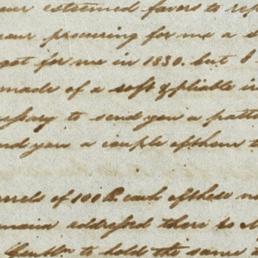 your esteemed favors to re
your procuring for me a s
got for me in 1830. but I
made of a soft & pliable in
necessary to send you a patte
send you a couple of them t
barrels of 100 lb each of these n
addressed there to M
to hold the same a